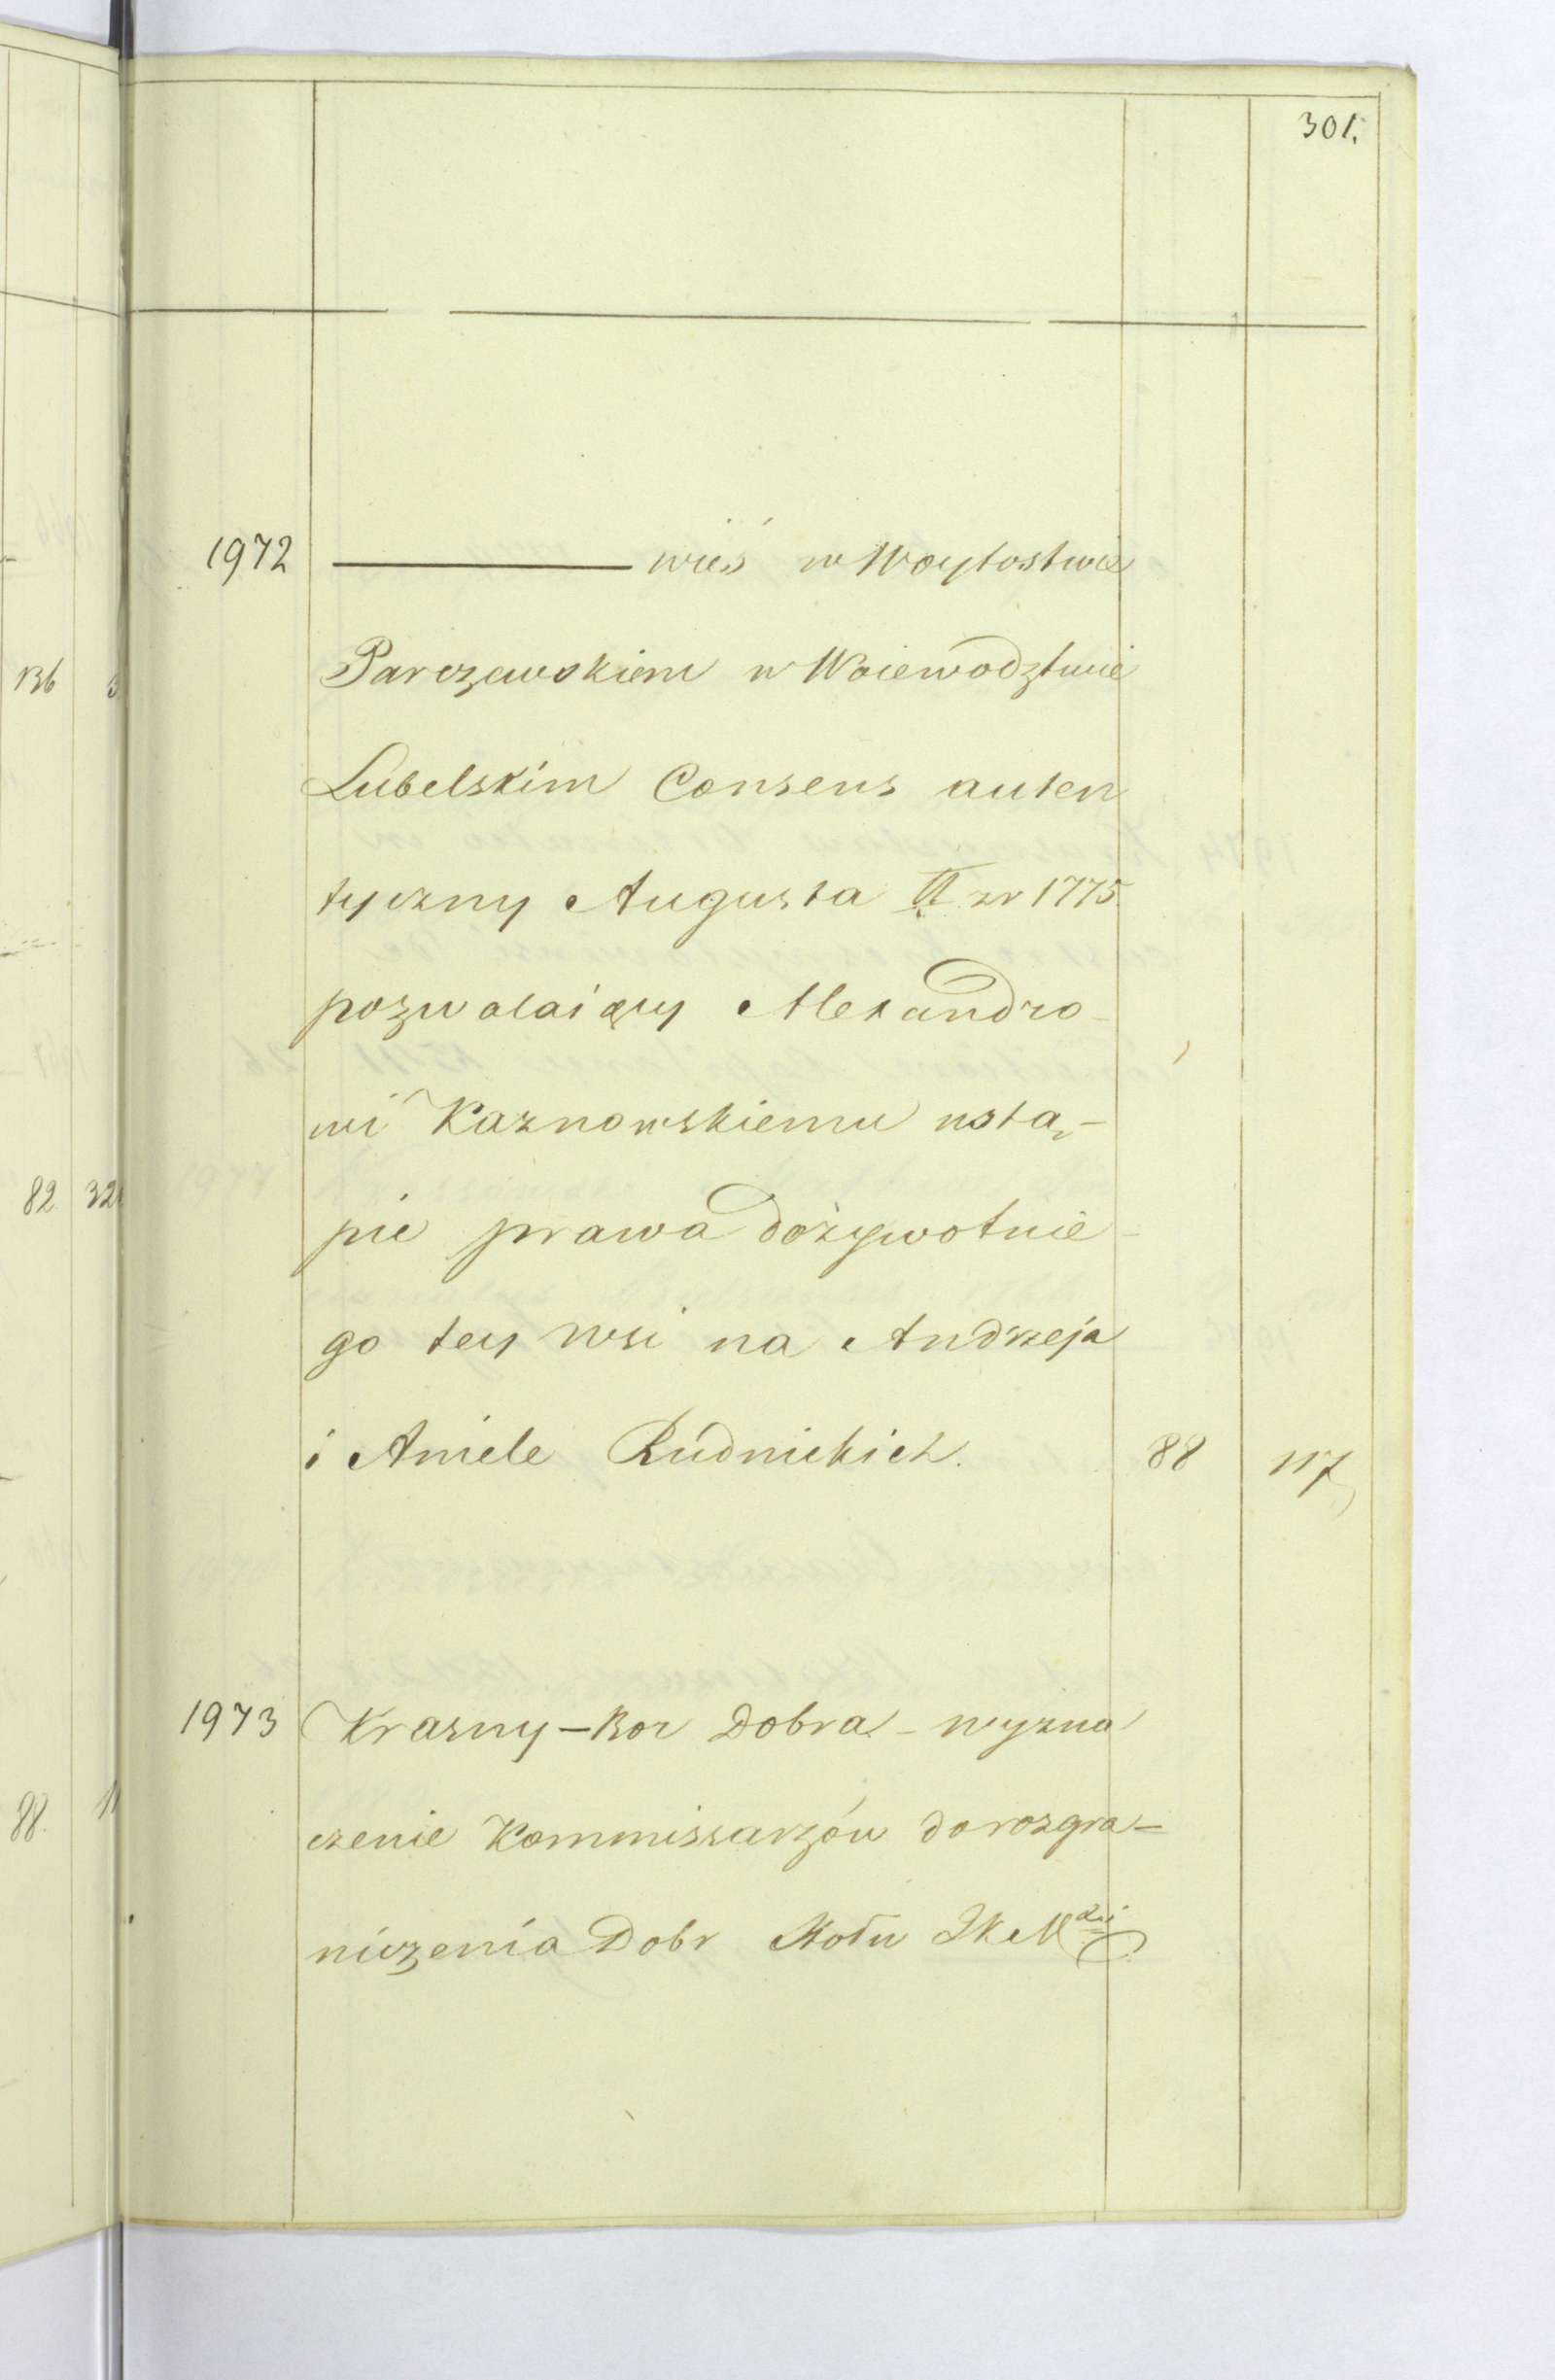 301.
1972 ——— wieś w Woytostwie
Parczewskiem w Woiewodztwie
Lubelskim Consens auten
tyczny Augusta II zr 1775
pozwalaiący Alexandro-
wi Kaznowskiemu ustą-
pie prawa dożywotnie-
go tey wsi na Andrzeja
i Aniele Rudnickich. 88 117
1973 Krasny-Bor Dobra - wyzna
czenie Kommissarzów do rozgra-
niczenia Dobr Stołu JKMci
136
82 32
88